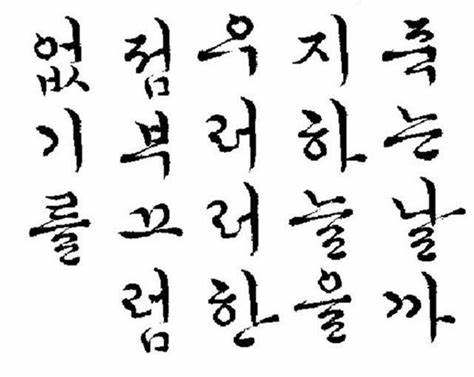 죽는날까
지하늘을
우러러한
점부끄럼
없기를